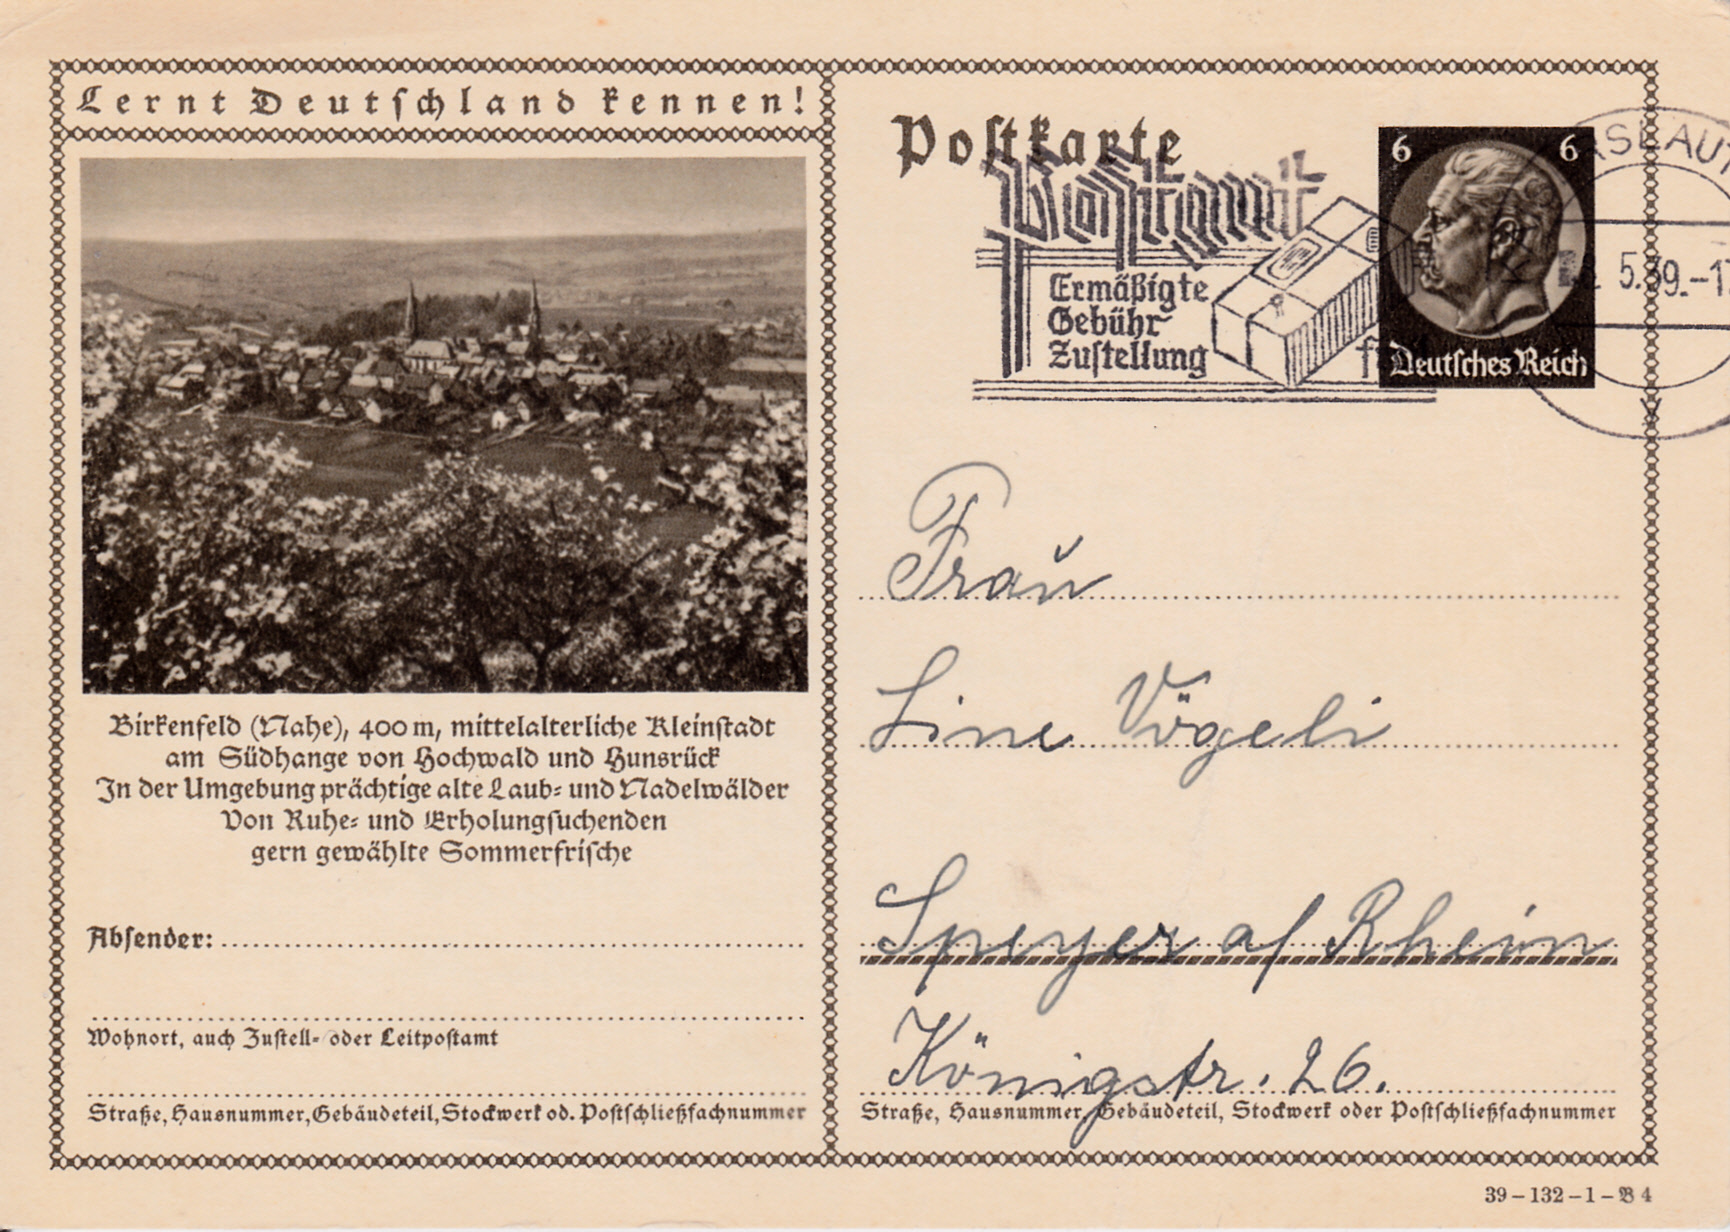 Lernt Deutschland kennen!
Birkenfeld (Nahe), 400 m, mittelalterliche Kleinstadt
am Südhange von Hochwald und Hunsrück
In der Umgebung prächtige alte Laub- und Nadelwälder
Von Ruhe- und Erholungsuchenden
gern gewählte Sommerfrische
Absender:
Wohnort, auch Zustell- oder Leitpostamt
Straße, Hausnummer, Gebäudeteil, Stockwerk od. Postschließfachnummer
Postkarte
Postgut
Ermäßigte
Gebühr
Zustellung
6 6
Deutsches Reich
5.39.-17
Frau
Line Vögeli
Speyer a/ Rhein
Königstr. 26.
Straße, Hausnummer, Gebäudeteil, Stockwerk oder Postschließfachnummer
39-132-1-B 4